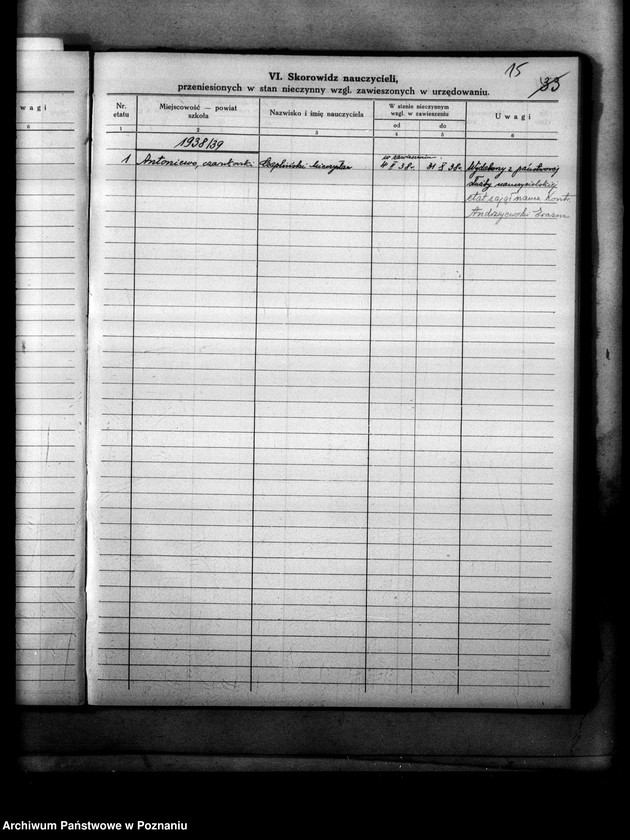 15
33
VI. Skorowidz nauczycieli,
przeniesionych w stan nieczynny wzgl. zawieszonych w urzędowaniu.
Uwagi
6
Nr. etatu
Miejscowość — powiat
szkoła
Nazwisko i imię nauczyciela
W stanie nieczynnym
wzgl. w zawieszeniu
od do
Uwagi
1 2 3 4 5 6
1938/39
w zawieszeniu
1 Antoniewo, czarnkowski Czapliński 4 X 38 r. 31 X 38 r. Wydalony z państwowej
służby nauczycielskiej
etat zajął naucz. kontr.
Andrzejewski
Archiwum Państwowe w Poznaniu